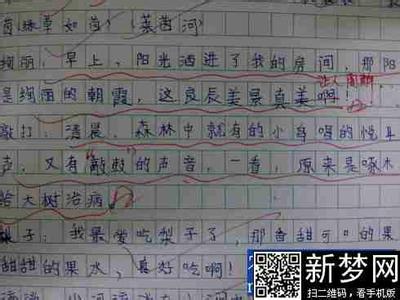 茵绿草如茵）（莱茵河）
绚丽：早上，阳光洒进了我的房间，那阳
是绚丽的朝霞，这良辰美景真美啊！
敲打：清晨，森林中就有的小鸟唱的悦耳
声，又有"敲鼓"的声音，一看，原来是啄木
给大树治病
梨子：我最爱吃梨子了，那香甜可口的果
甜甜的果水，真好吃啊！
新梦网
扫二维码，看手机版